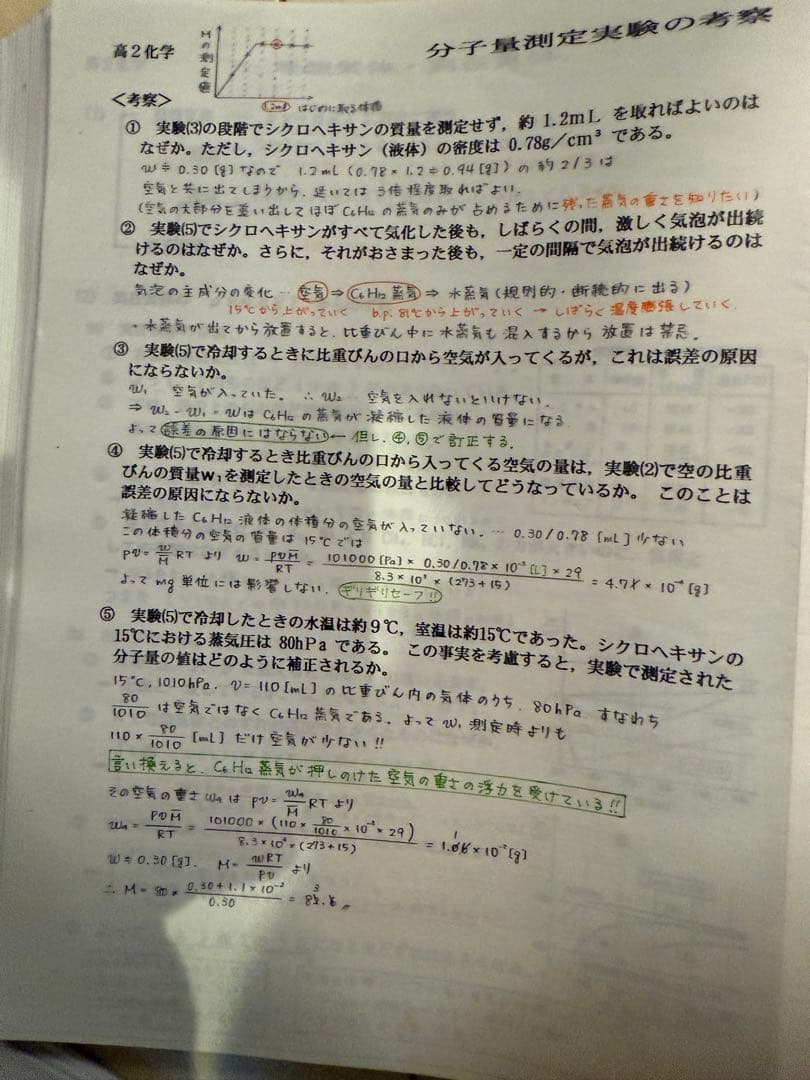 分子量測定実験の考察
高2化学
Mの測定値
1.2mL はじめに取る体積
<考察>
① 実験(3)の段階でシクロヘキサンの質量を測定せず，約 1.2mL を取ればよいのは
なぜか。ただし，シクロヘキサン（液体）の密度は 0.78g/cm³ である。
w≒0.30[g]なので 1.2mL (0.78×1.2≒0.94[g])の約2/3は
空気と共に出てしまうから、逆いては 3倍程度取ればよい.
(空気の大部分を追い出してほぼC₆H₁₂の蒸気のみが占めるために残った蒸気の重さを知りたい)
② 実験(5)でシクロヘキサンがすべて気化した後も，しばらくの間，激しく気泡が出続
けるのはなぜか。さらに，それがおさまった後も，一定の間隔で気泡が出続けるのは
なぜか。
気泡の主成分の変化… 空気 ⇒ C₆H₁₂蒸気 ⇒ 水蒸気(規則的・断続的に出る)
15℃から上がっていく b.p. 81℃から上がっていく → しばらく温度膨張していく.
・水蒸気が出てから放置すると、比重びん中に水蒸気も混入するから放置は禁忌。
③ 実験(5)で冷却するときに比重びんの口から空気が入ってくるが，これは誤差の原因
にならないか。
W₁ 空気が入っていた。 ∴ W₂… 空気を入れないといけない.
⇒ W₂-W₁=WはC₆H₁₂の蒸気が凝縮した液体の質量になる
よって誤差の原因にはならない ← 但し、④,⑤で訂正する.
④ 実験(5)で冷却するとき比重びんの口から入ってくる空気の量は，実験(2)で空の比重
びんの質量w₁を測定したときの空気の量と比較してどうなっているか。 このことは
誤差の原因にならないか。
凝縮したC₆H₁₂液体の体積分の空気が入っていない. … 0.30/0.78 [mL]少ない
この体積分の空気の質量は15℃では
pv=w/M RT より w=pvM/RT=101000[Pa]×0.30/0.78×10⁻³[L]×29/8.3×10³×(273+15)=4.7×10⁻⁴[g]
よってmg単位には影響しない. ギリギリセーフ!!
⑤ 実験(5)で冷却したときの水温は約９℃，室温は約15℃であった。シクロヘキサンの
15℃における蒸気圧は 80hPa である。 この事実を考慮すると，実験で測定された
分子量の値はどのように補正されるか。
15℃, 1010hPa. v=110[mL]の比重びん内の気体のうち、80hPa すなわち
80/1010 は空気ではなくC₆H₁₂蒸気である。よって W₁測定時よりも
110×80/1010 [mL]だけ空気が少ない!!
言い換えると、C₆H₁₂蒸気が押しのけた空気の重さの浮力を受けている!!
その空気の重さ Waは pv=Wa/M RTより
Wa=pvM/RT=101000×(110×80/1010×10⁻³×29)/8.3×10³×(273+15)=1.1×10⁻²[g]
W≒0.30[g]. M=wRT/pv より
∴ M=80×0.30+1.1×10⁻²/0.30=83.